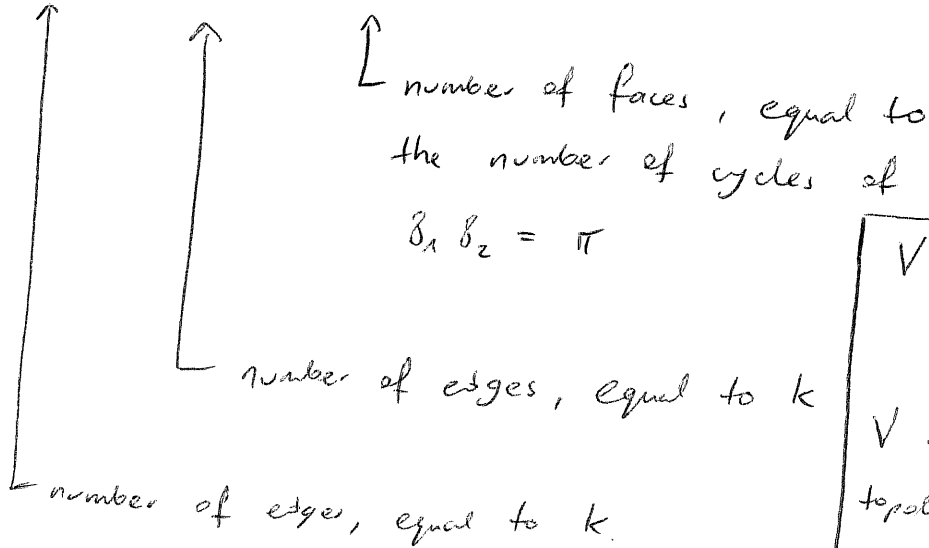 number of faces, equal to
the number of cycles of
γ₁ γ₂ = π
V
number of edges, equal to k
V
number of edges, equal to k.
topol